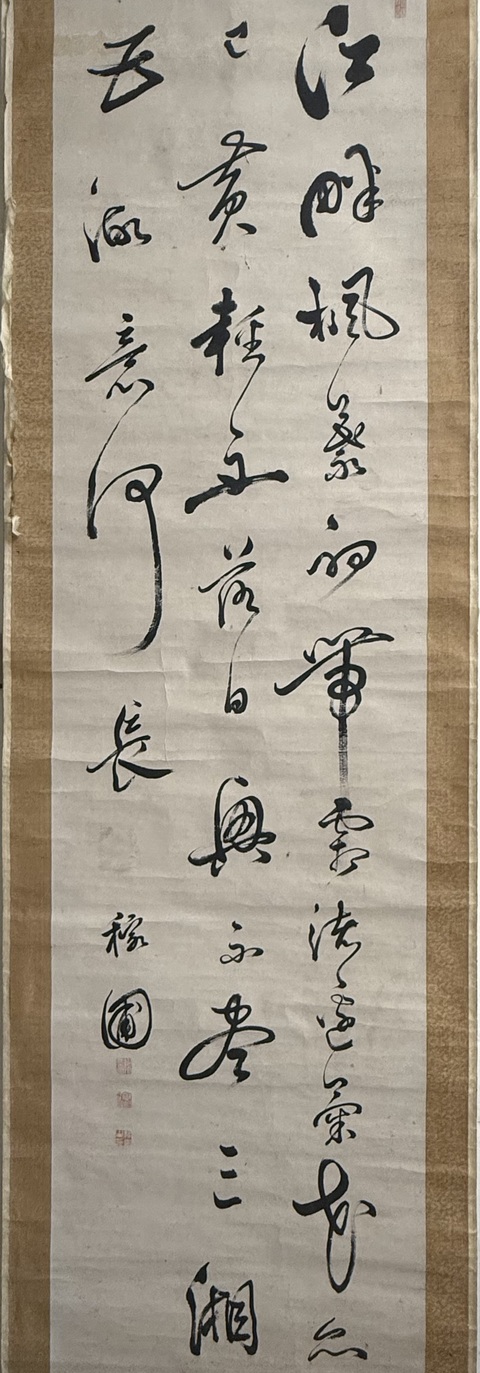 江畔楓葉初帶霜渚邊菊花亦
已黄輕舟落日興不尽三湘
五湖意何長
稼圃